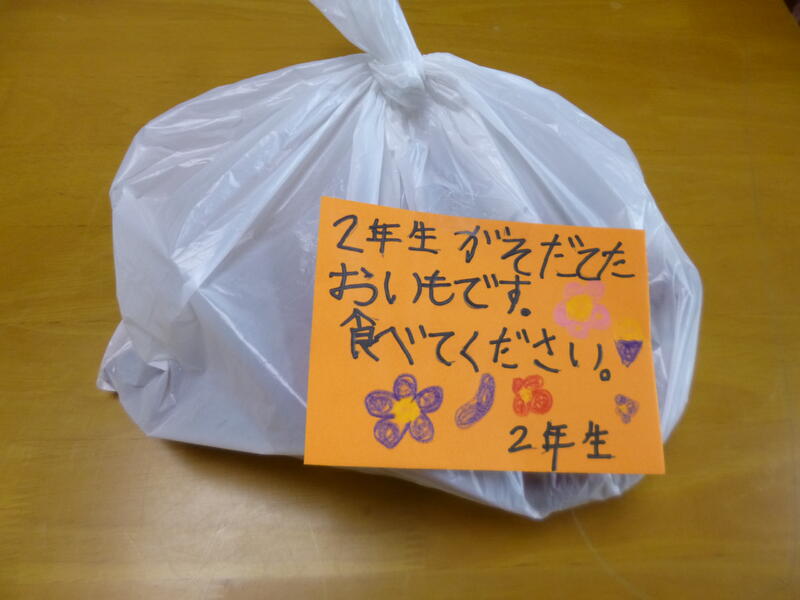 2年生がそだてた
おいもです。
食べてください。
2年生